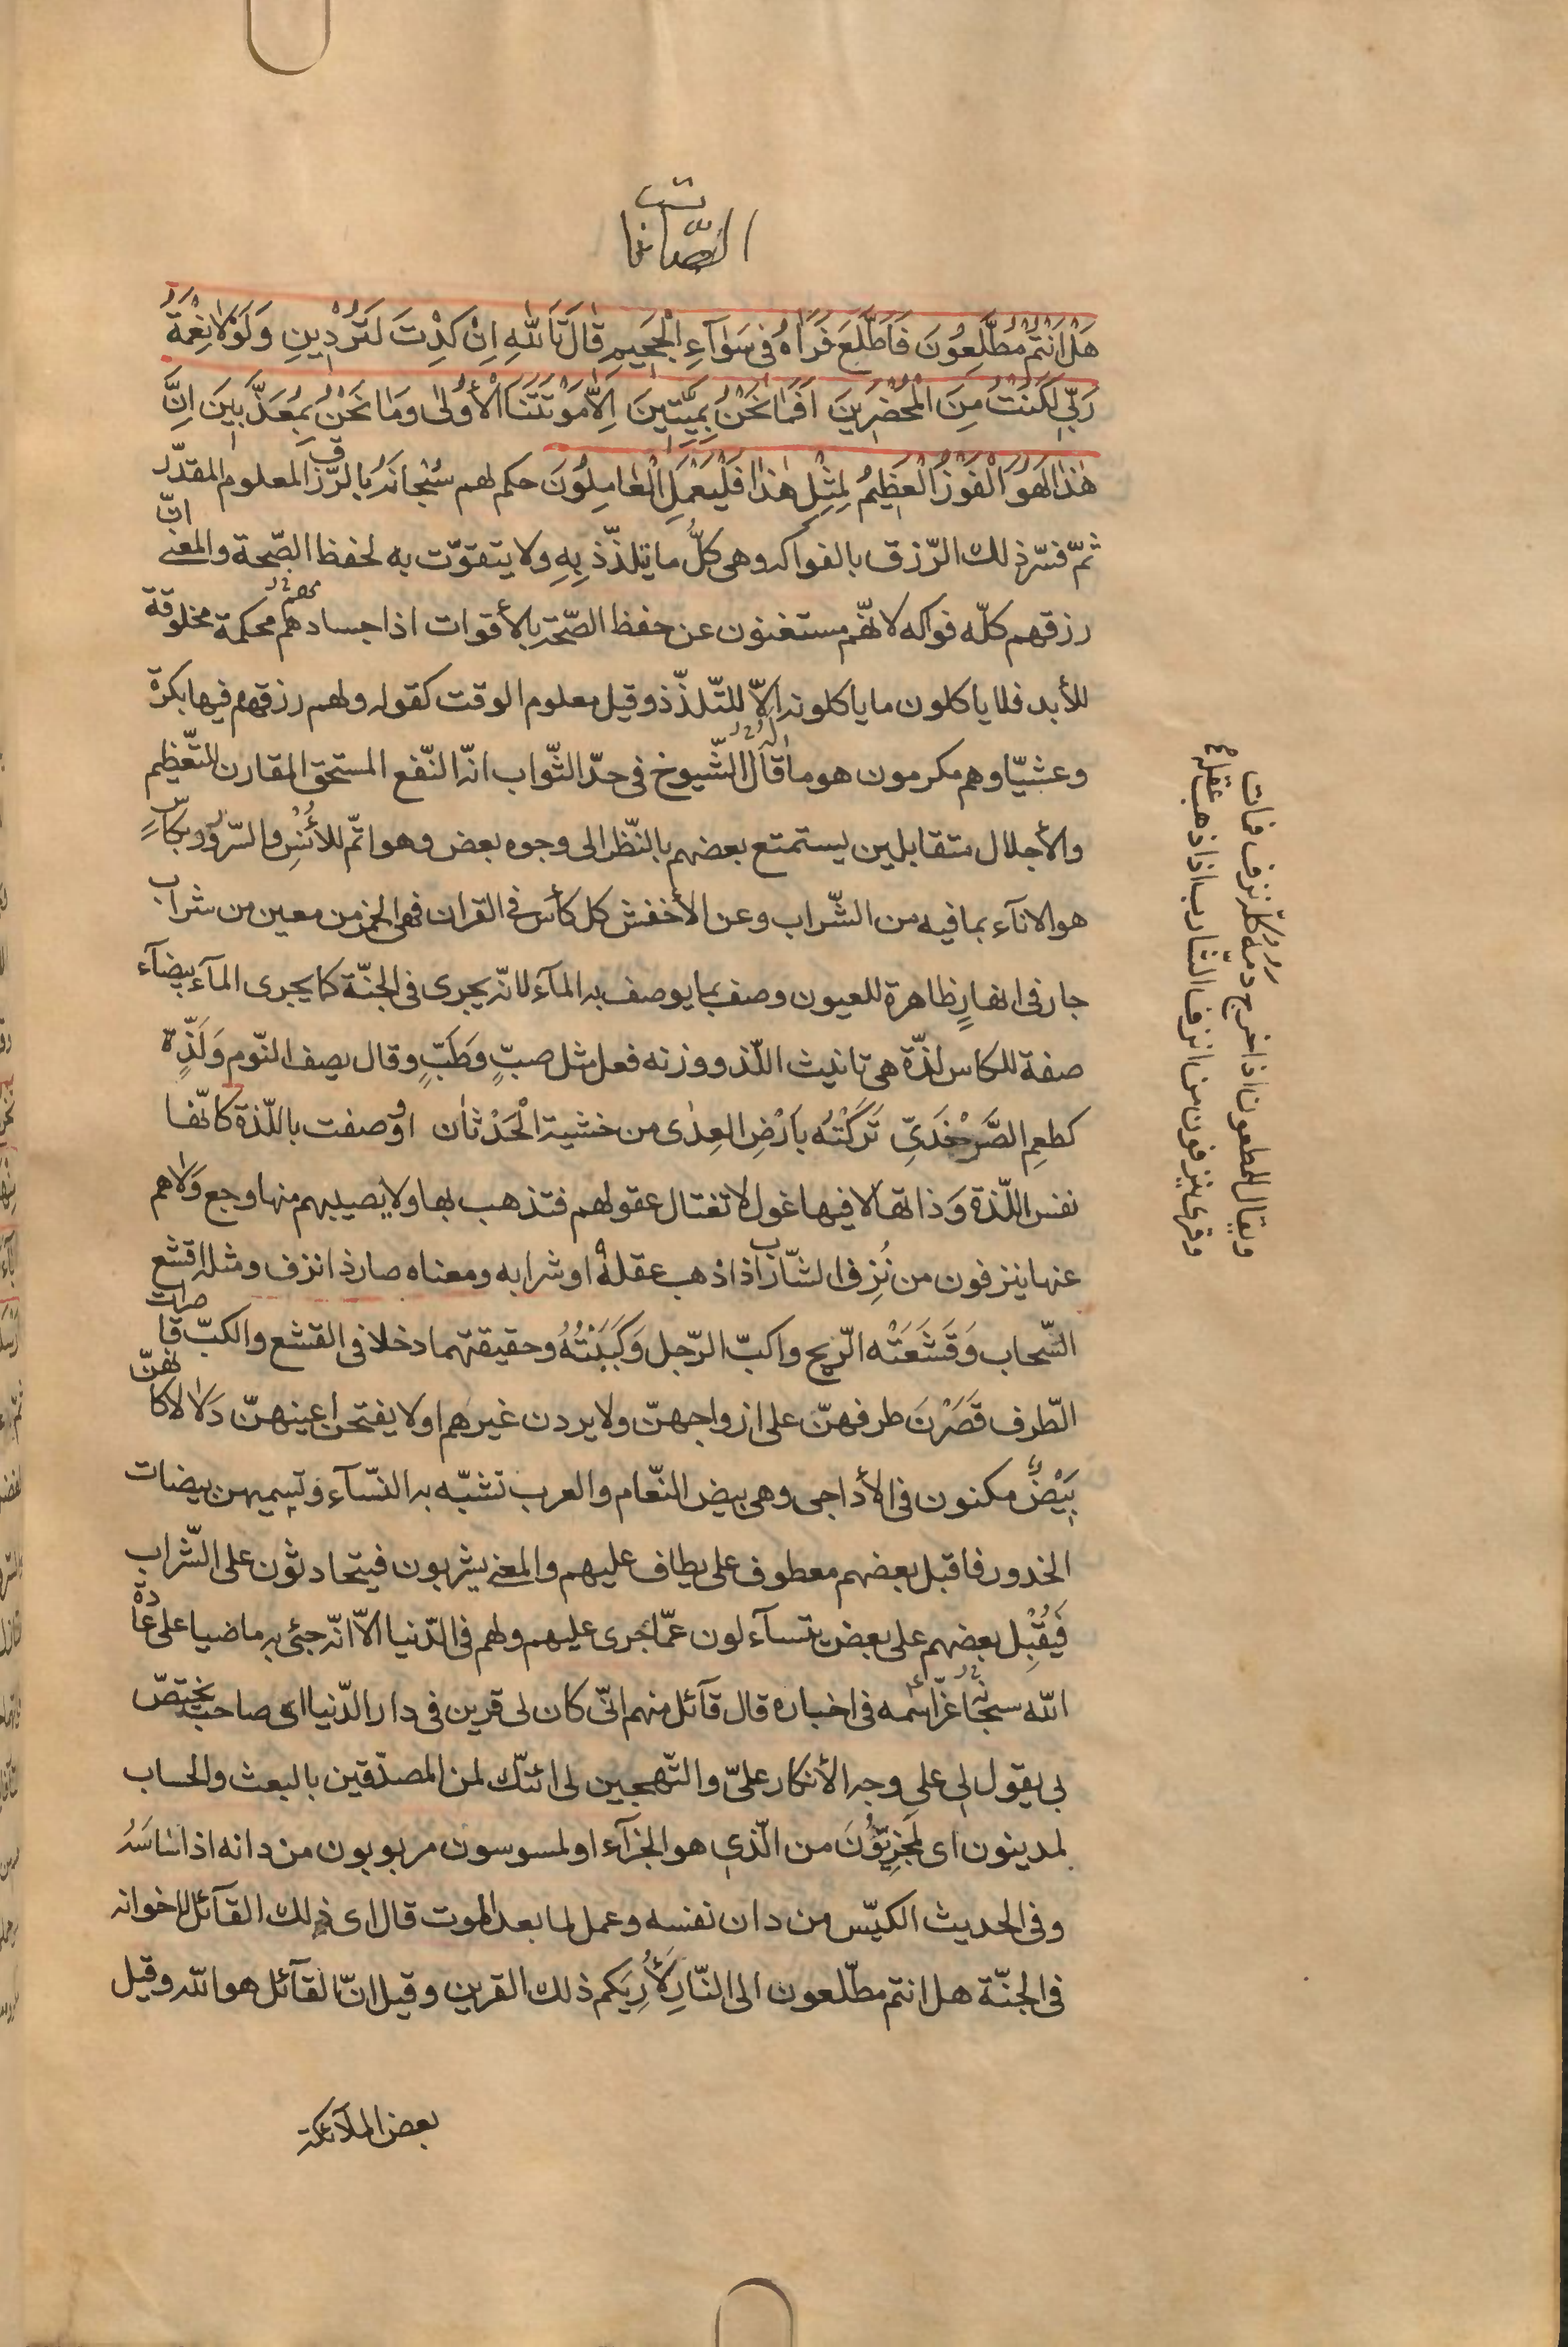 الصّافات
هَلْ اَنْتُمْ مُطَّلِعُونَ فَاطَّلَعَ فَرَاٰهُ فى سَوَآءِ الْجَحيمِ قٰالَ تَاللّٰهِ اِنْ كِدْتَ لَتُرْدينِ وَلَوْلاٰ نِعْمَةُ
رَبّى لَكُنْتُ مِنَ الْمُحْضَرينَ اَفَمٰا نَحْنُ بِمَيِّتينَ اِلاّٰ مَوْتَتَنَا الْأُولىٰ وَمٰا نَحْنُ بِمُعَذَّبينَ اِنَّ
هٰذٰا لَهُوَ الْفَوْزُ الْعَظيمُ لِمِثْلِ هٰذٰا فَلْيَعْمَلِ الْعٰامِلُونَ حكم لهم سُبْحانَهُ بالرّزق المعلوم المقدّر
ثمّ فسّر ذلك الرّزق بالفواكه وهى كلُّ ما يتلذّذ بِهِ ولا يتقوّت به لحفظ الصّحة والمعنى انّ
رزقهم كلّه فواكه لانّهم مستغنون عن حفظ الصّحّة بالأقوات اذ اجسادهم محكمة مخلوقة
للأبد فلا ياكلون ما ياكلونه الاّ للتّلذّذ وقيل معلوم الوقت كقوله ولهم رزقهم فيها بكرة
وعشيّا وهم مكرمون هو ما قاله الشّيوخ فى حدّ الثّواب انّه النّفع المستحق المقارن للتّعظيم
والأجلال متقابلين يستمتع بعضهم بالنّظر الى وجوه بعض وهو اتمّ للأُنْسِ والسّرور بكاسٍ
هو الاناء بما فيه من الشّراب وعن الأخفش كل كأس فى القران فهى الخمر من معين من شراب
جار فى انهارٍ ظاهرة للعيون وصف بما يوصف به المآء لانّه يجرى فى الجنّة كما يجرى المآء بيضآء
صفة للكاس لذّة هى تانيث اللّذ ووزنه فعل مثل صبٍّ وطَبٍّ وقال يصف النّوم وَلَذٍّ
كطعمِ الصَّرْخَدىِّ تَرَكْتُه بارْضِ العِدٰى من خشية الْحَدْثٰان او وصفت باللّذة كانّها
نفس اللّذة وَذاتها لا فيها غول لا تغتال عقولهم فتذهب بها ولا يصيبهم منها وجع وَلاٰ هم
عنها ينزفون من نُزِف الشّارب اذا ذهب عقله او شرابه ومعناه صار ذا نزف ومثله اقشع
السّحاب وَقَشَعَتْه الرّيح واكبّ الرّجل وَكَبَبْتُهُ وحقيقتهما دخلا فى القشع والكبّ قاصرات
الطّرف قَصَرْنَ طرفهنّ على ازواجهنّ ولا يردن غيرهم او لا يفتحن اعينهنّ دَلالا كانهنّ
بَيْضٌ مكنون فى الأداحى وهى بيض النّعام والعرب تشبّه به النّسآء وتسميهن بيضات
الخدور فاقبل بعضهم معطوف على يطاف عليهم والمعنى يشربون فيتحادثون على الشّراب
فَيُقْبِل بعضهم على بعض يتسآءلون عمّا جرى عليهم ولهم فى الدّنيا الاّ انّه جئ به ماضيا على عادة
اللّه سبحانه عزّ اسمه فى اخباره قال قآئل منهم انّى كان لى قرين فى دار الدّنيا اى صاحب يختصّ
بى يقول لى على وجه الأنكار علىّ والتّهجين لى ائنّك لمن المصدّقين بالبعث والحساب
لمدينون اى لَمَجْزِيّوُنَ من الّذى هو الجزآء او لمسوسون مربوبون من دانه اذا سَاسَهُ
وفى الحديث الكيّس من دان نفسه وعمل لما بعد الموت قال اى ذلك القآئل لاخوانه
فى الجنّة هل انتم مطّلعون الى النّارِ لأُرِيَكم ذلك القرين وقيل انّ القآئل هو اللّه وقيل
بعض الملآئكة
ويقال للمطعون اذا خرج دمه كلّه نزف فمات
وقرئ ينزفون من انزف الشّارب اذا ذهب عقله